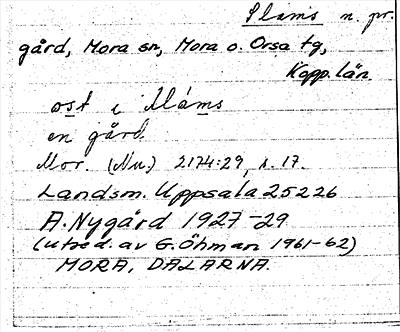 Slams n. pr.
gård, Mora sn, Mora o. Orsa tg,
Kopp. län.
ost i Måms
en gård.
Mor. (Nu.) 2174:29, s. 17.
Landsm. Uppsala 25226
A. Nygård 1927-29
(utred. av G. Öhman 1961-62)
MORA, DALARNA.